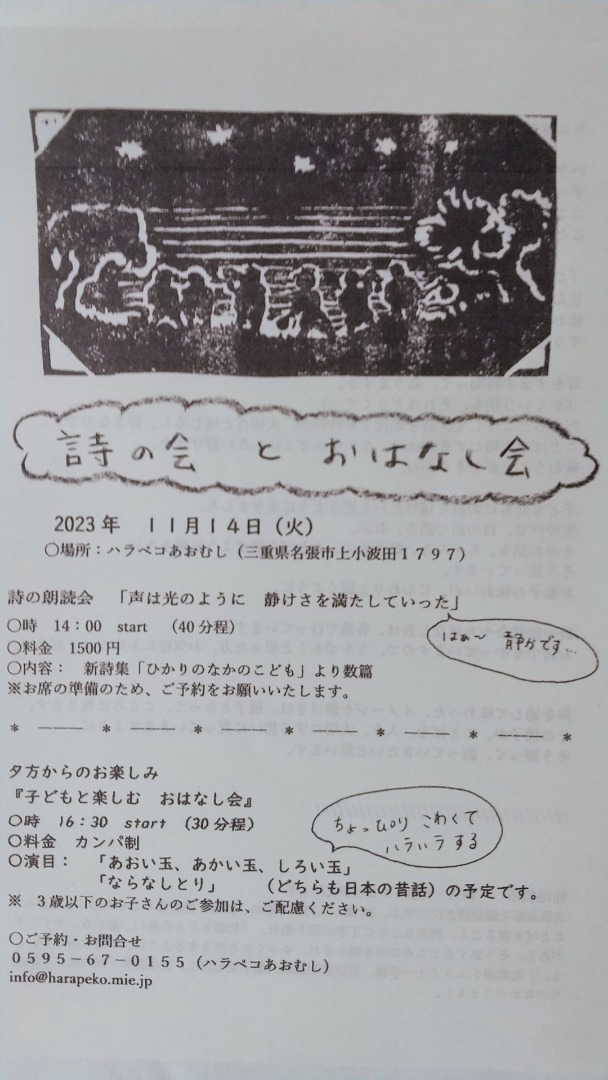 詩の会 と おはなし会
2023年 11月14日(火)
〇場所:ハラペコあおむし(三重県名張市上小波田1797)
詩の朗読会 「声は光のように 静けさを満たしていった」
〇時 14:00 start (40分程)
〇料金 1500円
〇内容: 新詩集「ひかりのなかのこども」より数篇
※お席の準備のため、ご予約をお願いいたします。
はぁ~ 静かです…
* ―― * ―― * ―― * ―― * ―― * ―― *
夕方からのお楽しみ
『子どもと楽しむ おはなし会』
〇時 16:30 start (30分程)
〇料金 カンパ制
〇演目: 「あおい玉、あかい玉、しろい玉」
「ならなしとり」 (どちらも日本の昔話)の予定です。
※ 3歳以下のお子さんのご参加は、ご配慮ください。
ちょっぴり こわくて
ハラハラする
〇ご予約・お問合せ
0595-67-0155(ハラペコあおむし)
info@harapeko.mie.jp